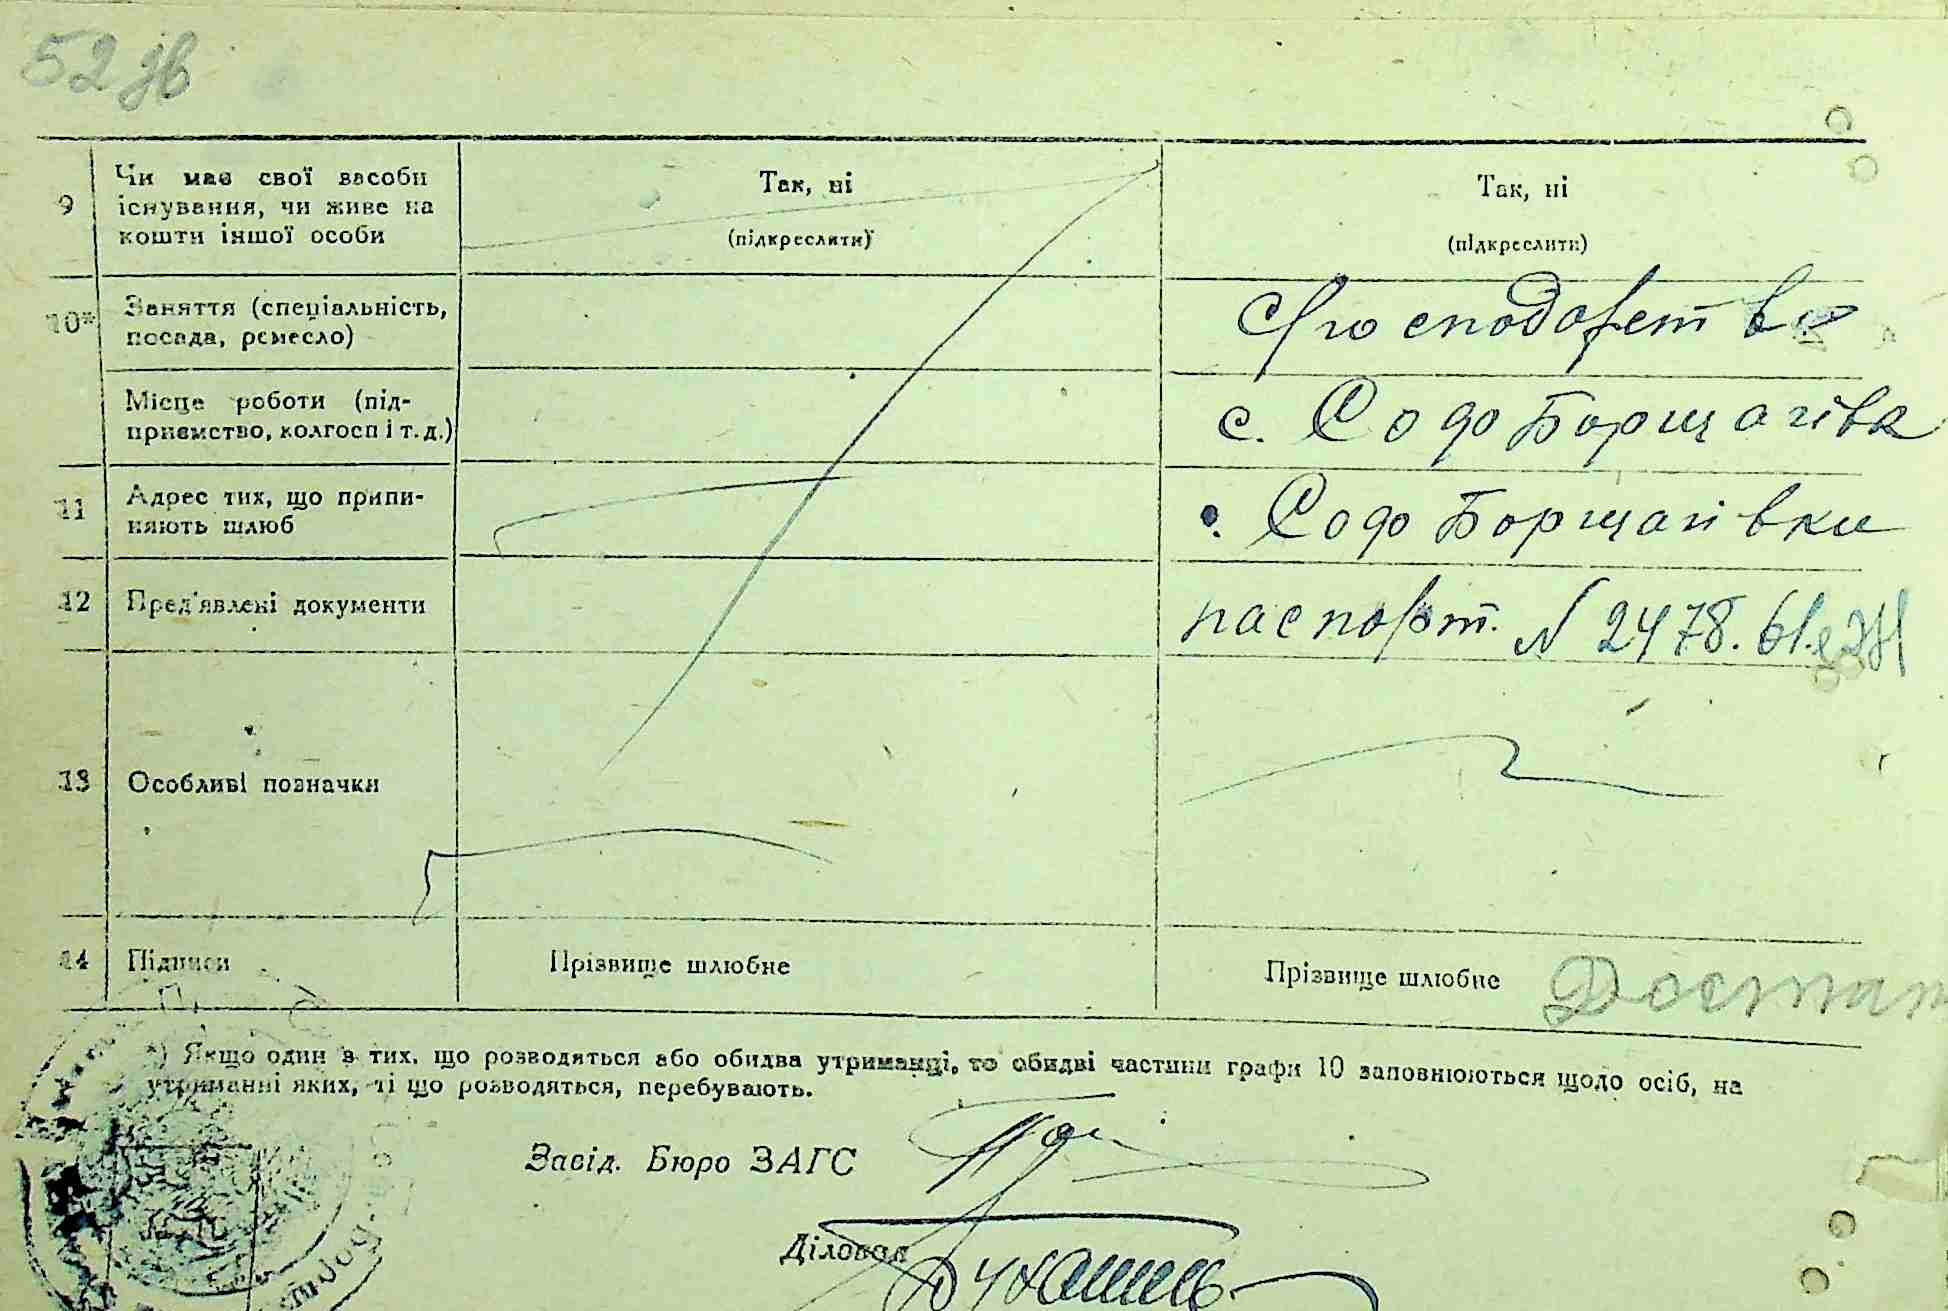 52 зв
9
Чи має свої засоби
існування, чи живе на
кошти іншої особи
Так, ні
(підкреслити)
Так, ні
(підкреслити)
10*
Заняття (спеціальність,
посада, ремесло)
Місце роботи (під-
приємство, колгосп і т. д.)
с. Софо Борщагівка
11
Адрес тих, що припи-
няють шлюб
Софо Борщагівки
12
Пред'явлені документи
паспорт. N 2478.61
13
Особливі позначки
14
Підписи
Прізвище шлюбне
Прізвище шлюбне
*) Якщо один з тих, що розводяться або обидва утриманці, то обидві частини графи 10 заповнюються щодо осіб, на
утриманні яких, ті що розводяться, перебувають.
Завід. Бюро ЗАГС
Діловод